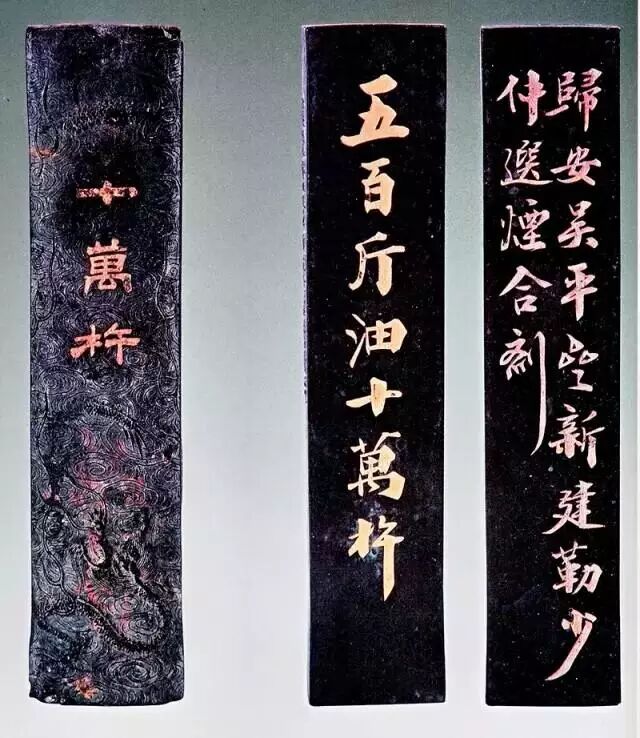 十萬杵
五百斤油十萬杵
歸安吴平亝新建勒少
仲選煙合劑